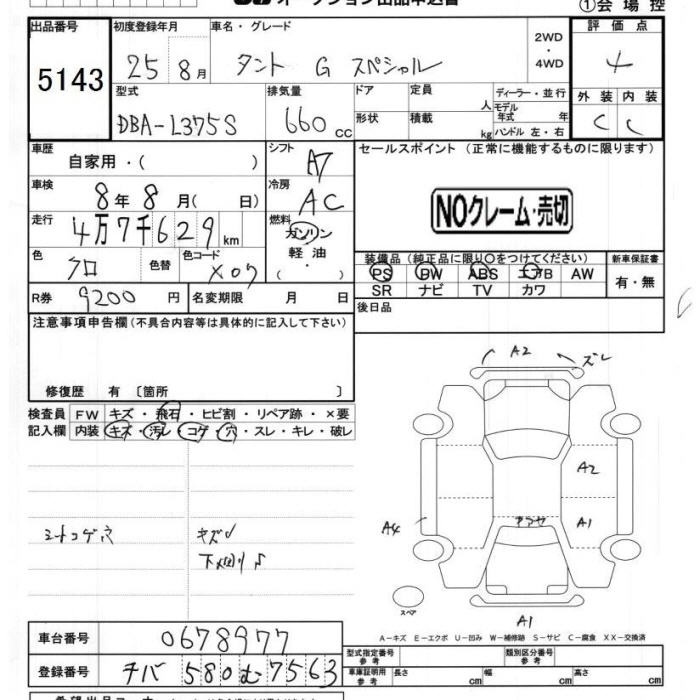 オークション出品申込書
①会場控
出品番号
5143
初度登録年月
25 8月
車名・グレード
タント G スペシャル
2WD
・
4WD
評価点
4
外装 内装
C C
型式
DBA-L375S
排気量
660 cc
ドア 定員 人
形状 積載 kg
ディーラー・並行
モデル年式 年
ハンドル 左・右
車歴
自家用・( )
シフト
A7
セールスポイント (正常に機能するものに限ります)
NOクレーム・売切
車検
8年 8月( 日)
冷房
AC
走行
4万7千629km
燃料
ガソリン
軽油
・( )
色
クロ
色替
色コード
X07
装備品 (純正品に限り○をつけてください)
PS PW ABS エアB AW
SR ナビ TV カワ
新車保証書
有・無
R券
9200円
名変期限 月 日
後日品
注意事項申告欄(不具合内容等は具体的に記入して下さい)
修復歴 有 〔箇所 〕
検査員 FW キズ・飛石・ヒビ割・リペア跡・×要
記入欄 内装 キズ・汚レ・コゲ・穴・スレ・キレ・破レ
シートコゲ穴
キズ
下メクリ
A2 ズレ
A2
A1
A4
スペア
A1
A-キズ E-エクボ U-凹み W-補修跡 S-サビ C-腐食 XX-交換済
車台番号
0678977
登録番号
チバ 580 む 7563
型式指定番号
参考
類別区分番号
参考
車庫証明用
参考
長さ cm
幅 cm
高さ cm
希望出品コーナー